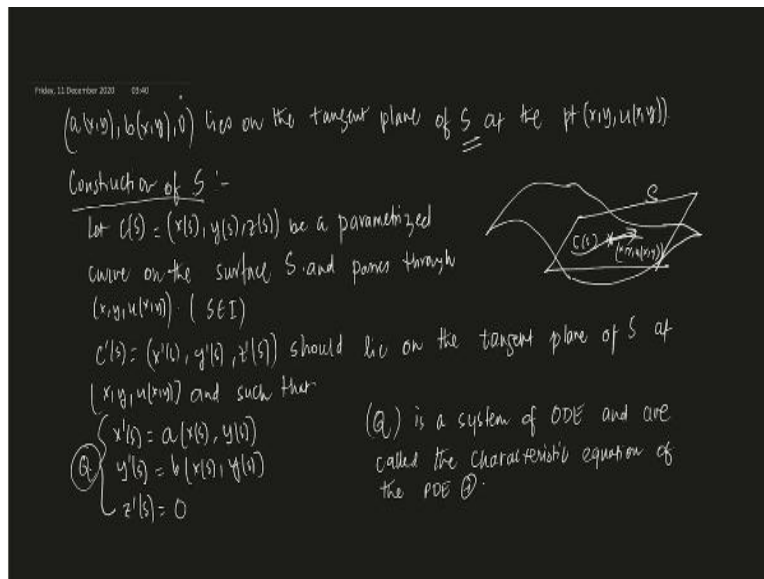 Friday, 11 December 2020 03:40
(a(x,y), b(x,y), 0) lies on the tangent plane of S at the pt (x,y,u(x,y)).
Construction of S :-
Let C(s) = (x(s), y(s), z(s)) be a parametrized
curve on the surface S. and passes through
(x,y,u(x,y)). (S∈I)
C'(s) = (x'(s), y'(s), z'(s)) should lie on the tangent plane of S at
(x,y,u(x,y)) and such that
x'(s) = a(x(s), y(s))
Q y'(s) = b(x(s), y(s))
z'(s) = 0
(Q) is a system of ODE and are
called the characteristic equation of
the PDE
S
C(s)
(x,y,u(x,y))